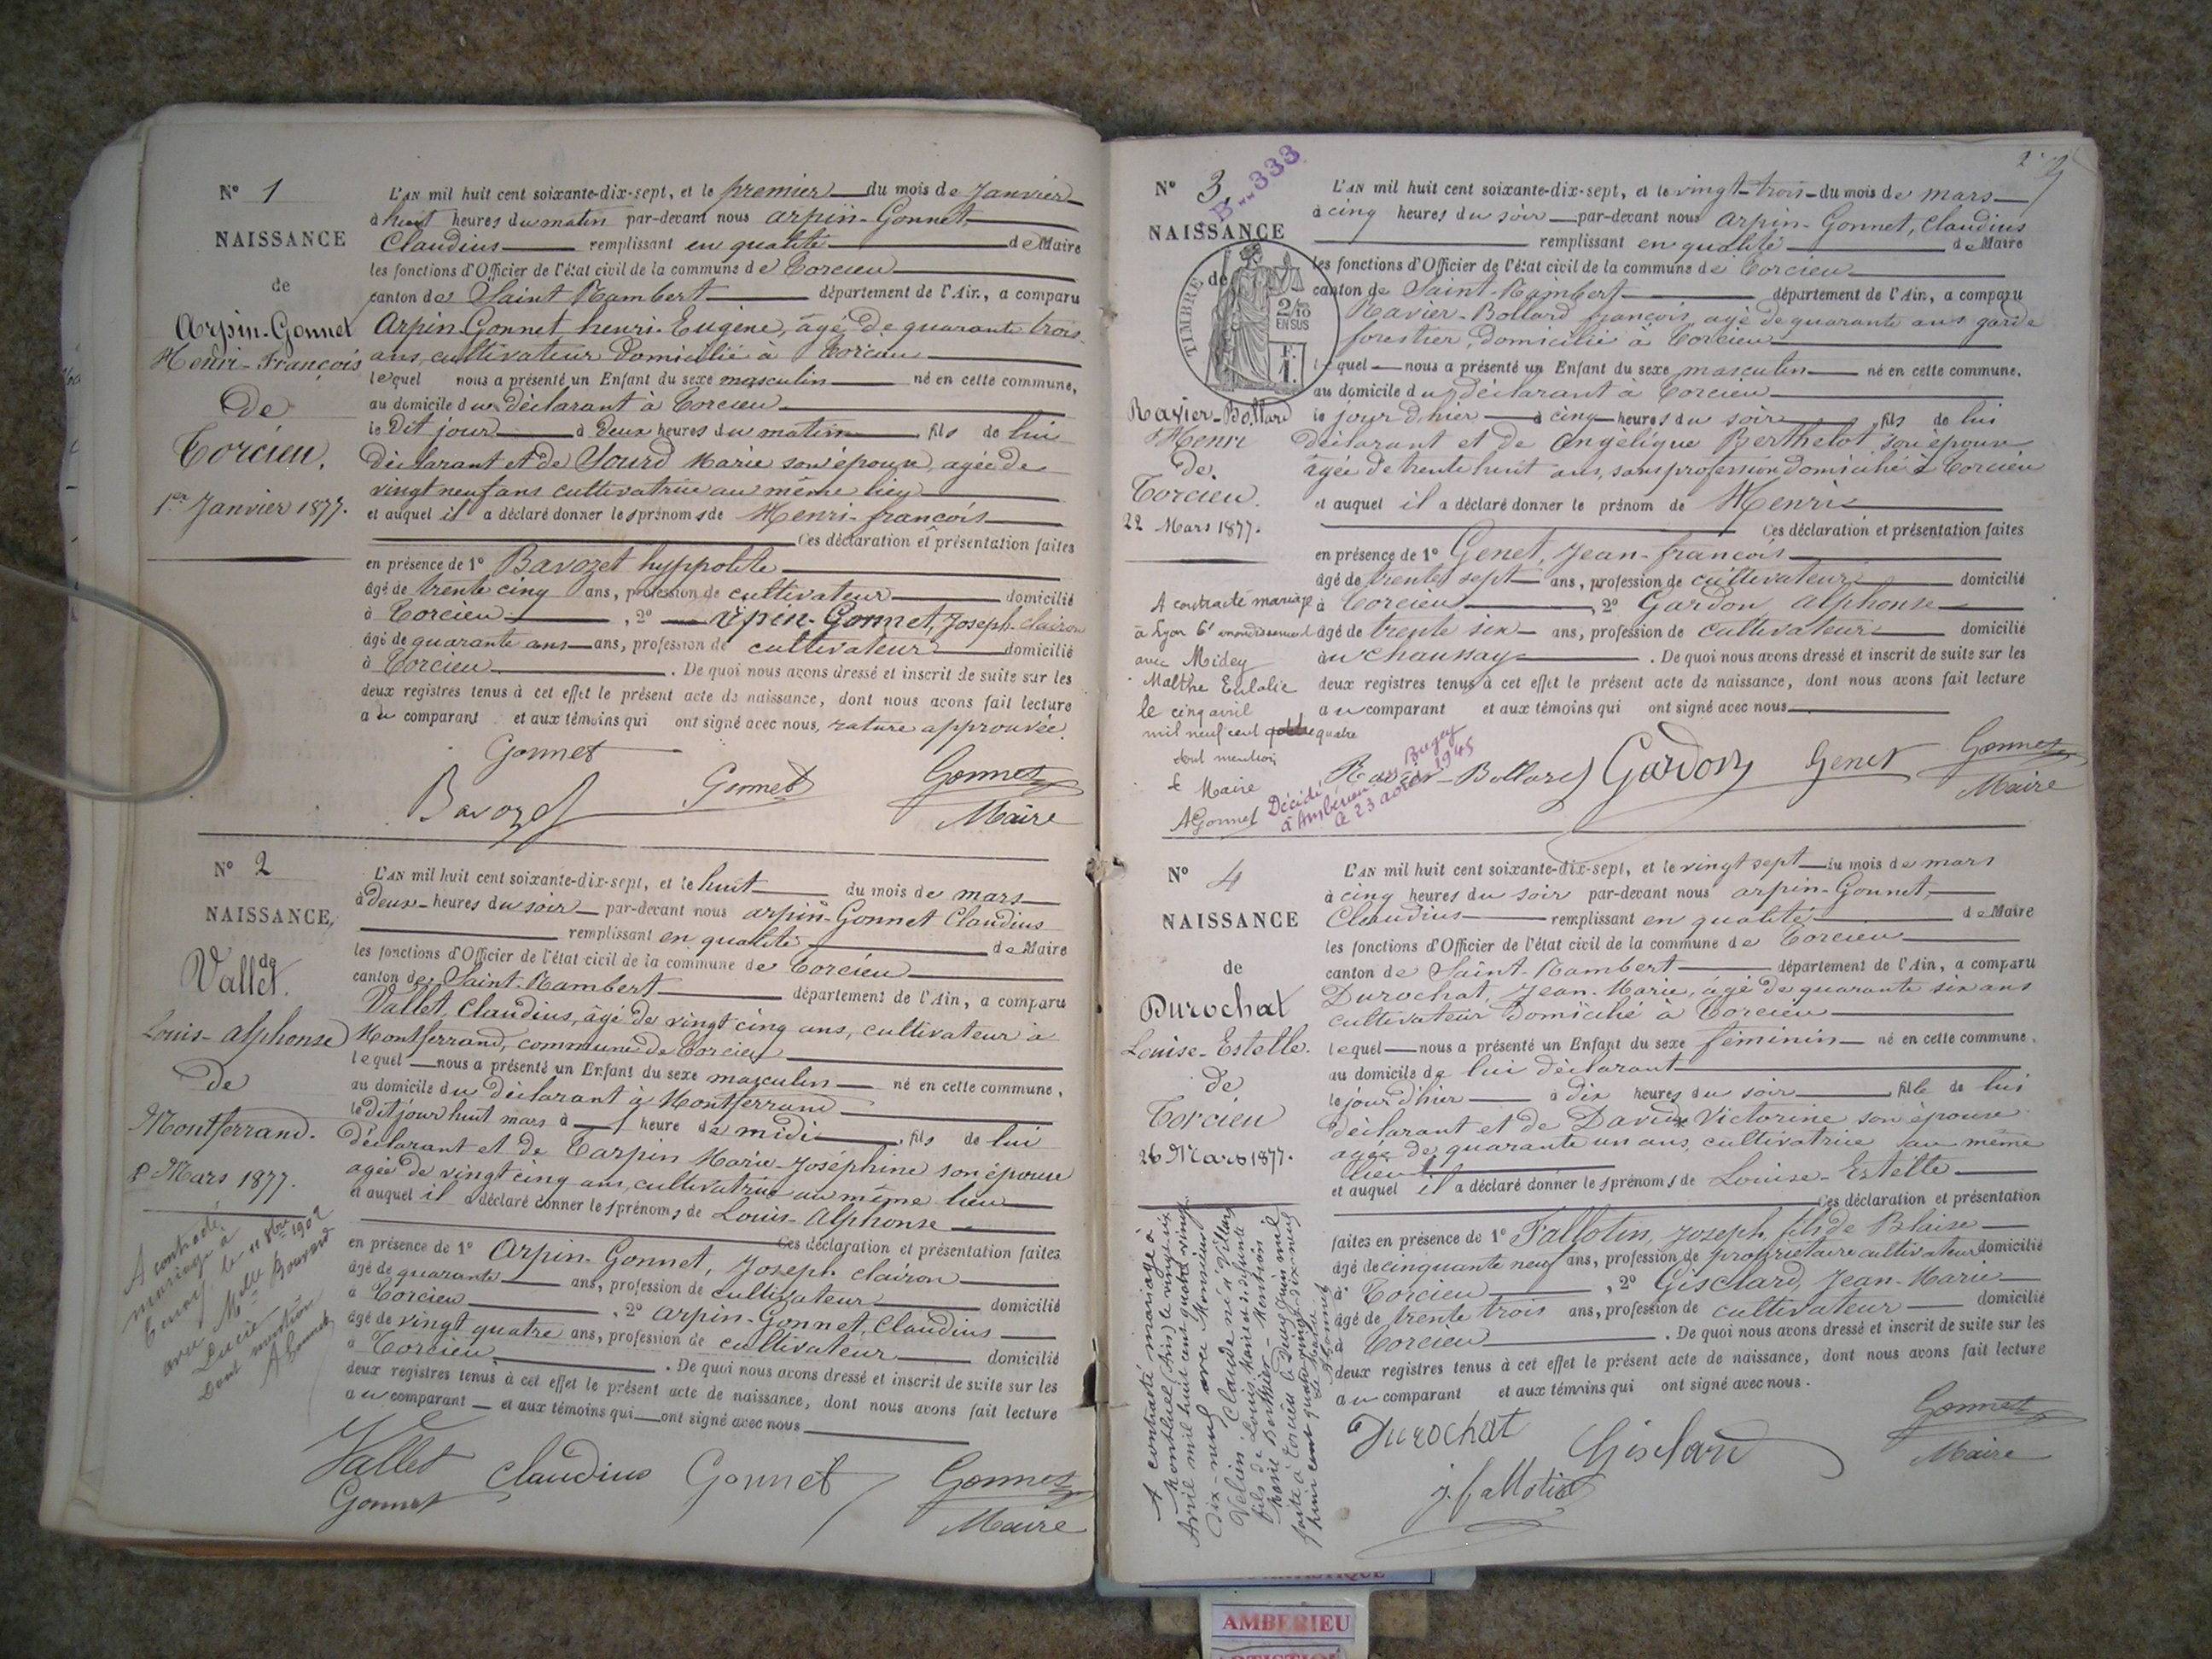 N° 1
NAISSANCE
de
Arpin-Gonnet
Henri-François
de
Torcieu.
1er Janvier 1877.
L'AN mil huit cent soixante-dix-sept, et le premier du mois de Janvier
à huit heures du matin par-devant nous Arpin-Gonnet,
Claudius remplissant en qualité de Maire
les fonctions d'Officier de l'état civil de la commune de Torcieu
canton de Saint Rambert département de l'Ain, a comparu
Arpin-Gonnet henri-Eugène, âgé de quarante trois
ans, cultivateur domicilié à Torcieu
lequel nous a présenté un Enfant du sexe masculin né en cette commune,
au domicile du déclarant à Torcieu
le dit jour à deux heures du matin, fils de lui
déclarant et de Sourd Marie son épouse, agée de
vingt neuf ans cultivatrice au même lieu
et auquel il a déclaré donner les prénoms de Henri-françois
Ces déclaration et présentation faites
en présence de 1° Bavozet hyppolite
âgé de trente cinq ans, profession de cultivateur domicilié
à Torcieu, 2° arpin-Gonnet, Joseph clairon
âgé de quarante ans ans, profession de cultivateur domicilié
à Torcieu. De quoi nous avons dressé et inscrit de suite sur les
deux registres tenus à cet effet le présent acte de naissance, dont nous avons fait lecture
au comparant et aux témoins qui ont signé avec nous, rature approuvée.
Gonnet
Bavozet Gonnet Gonnet
Maire
N° 2
NAISSANCE,
de
Vallet.
Louis-alphonse
de
Montferrand.
8 Mars 1877.
A contracté
mariage à
le 11 8bre 1902
avec Melle Bouvard
Lucie
Dont mention
A Gonnet
L'AN mil huit cent soixante-dix-sept, et le huit du mois de mars
à deux heures du soir par-devant nous arpin-Gonnet Claudius
remplissant en qualité de Maire
les fonctions d'Officier de l'état civil de la commune de Torcieu
canton de Saint-Rambert département de l'Ain, a comparu
Vallet, Claudius, âgé de vingt cinq ans, cultivateur à
Montferrand, commune de Torcieu
lequel nous a présenté un Enfant du sexe masculin né en cette commune,
au domicile du déclarant à Montferrand
le dit jour huit mars à heure de midi, fils de lui
déclarant et de Tarpin Marie-Joséphine son épouse
agée de vingt cinq ans, cultivatrice au même lieu
et auquel il a déclaré donner les prénoms de Louis-alphonse
Ces déclaration et présentation faites
en présence de 1° Arpin-Gonnet, Joseph clairon
âgé de quarante ans, profession de cultivateur domicilié
à Torcieu, 2° arpin-Gonnet, Claudius
âgé de vingt quatre ans, profession de cultivateur domicilié
à Torcieu. De quoi nous avons dressé et inscrit de suite sur les
deux registres tenus à cet effet le présent acte de naissance, dont nous avons fait lecture
au comparant et aux témoins qui ont signé avec nous
Vallet Claudius Gonnet Gonnet
Gonnet Maire
2
N° 3
B 333
NAISSANCE
de
TIMBRE
2/10
EN SUS
F.
1.
Ravier-Bollard
Henri
de
Torcieu.
22 Mars 1877.
A contracté mariage
à Lyon 6e arrondissement
avec Midey
Malthe Eulalie
le cinq avril
mil neuf cent quatre
dont mention
Le Maire
AGonnet
Décédé
à Ambérieu-en-Bugey
le 23 août 1945
L'AN mil huit cent soixante-dix-sept, et le vingt-trois du mois de mars
à cinq heures du soir par-devant nous Arpin-Gonnet, Claudius
remplissant en qualité de Maire
les fonctions d'Officier de l'état civil de la commune de Torcieu
canton de Saint-Rambert département de l'Ain, a comparu
Ravier-Bollard françois, agé de quarante ans garde
forestier, domicilié à Torcieu
lequel nous a présenté un Enfant du sexe masculin né en cette commune,
au domicile du déclarant à Torcieu
le jour d'hier à cinq heures du soir, fils de lui
déclarant et de Angélique Berthelot son épouse
âgée de trente huit ans, sans profession domiciliée à Torcieu
et auquel il a déclaré donner le prénom de Henri
Ces déclaration et présentation faites
en présence de 1° Genet, Jean-françois
âgé de trente sept ans, profession de cultivateur domicilié
à Torcieu, 2° Gardon, alphonse
âgé de trente six ans, profession de cultivateur domicilié
à u chaussay. De quoi nous avons dressé et inscrit de suite sur les
deux registres tenus à cet effet le présent acte de naissance, dont nous avons fait lecture
au comparant et aux témoins qui ont signé avec nous
Ravier-Bollard Gardon Genet Gonnet
Maire
N° 4
NAISSANCE
de
Durochat
Louise-Estelle.
de
Torcieu
26 Mars 1877.
A contracté mariage à
Montluel (Ain) le vingt six
Avril mil huit cent quatre vingt
dix-neuf avec Monsieur
Velien, Claude né à Villars
fils de Louis Marie et de défunte
Marie Berthier - Mention
faite à Torcieu le Deux Juin mil
huit cent quatre vingt dix-neuf
Le Maire
A Gonnet
L'AN mil huit cent soixante-dix-sept, et le vingt sept du mois de mars
à cinq heures du soir par-devant nous arpin-Gonnet,
Claudius remplissant en qualité de Maire
les fonctions d'Officier de l'état civil de la commune de Torcieu
canton de Saint-Rambert département de l'Ain, a comparu
Durochat, Jean-Marie, âgé de quarante six ans
cultivateur domicilié à Torcieu
lequel nous a présenté un Enfant du sexe féminin né en cette commune,
au domicile de lui déclarant
le jour d'hier à dix heures du soir, fille de lui
déclarant et de David Victorine son épouse
agée de quarante un ans, cultivatrice au même
lieu
et auquel il a déclaré donner les prénoms de Louise-Estelle
Ces déclaration et présentation
faites en présence de 1° Fallotin, Joseph fils de Blaise
âgé de cinquante neuf ans, profession de propriétaire cultivateur domicilié
à Torcieu, 2° Gisclard, Jean-Marie
âgé de trente trois ans, profession de cultivateur domicilié
à Torcieu. De quoi nous avons dressé et inscrit de suite sur les
deux registres tenus à cet effet le présent acte de naissance, dont nous avons fait lecture
au comparant et aux témoins qui ont signé avec nous.
Durochat Gisclard Gonnet
J. fallotin Maire
AMBERIEU